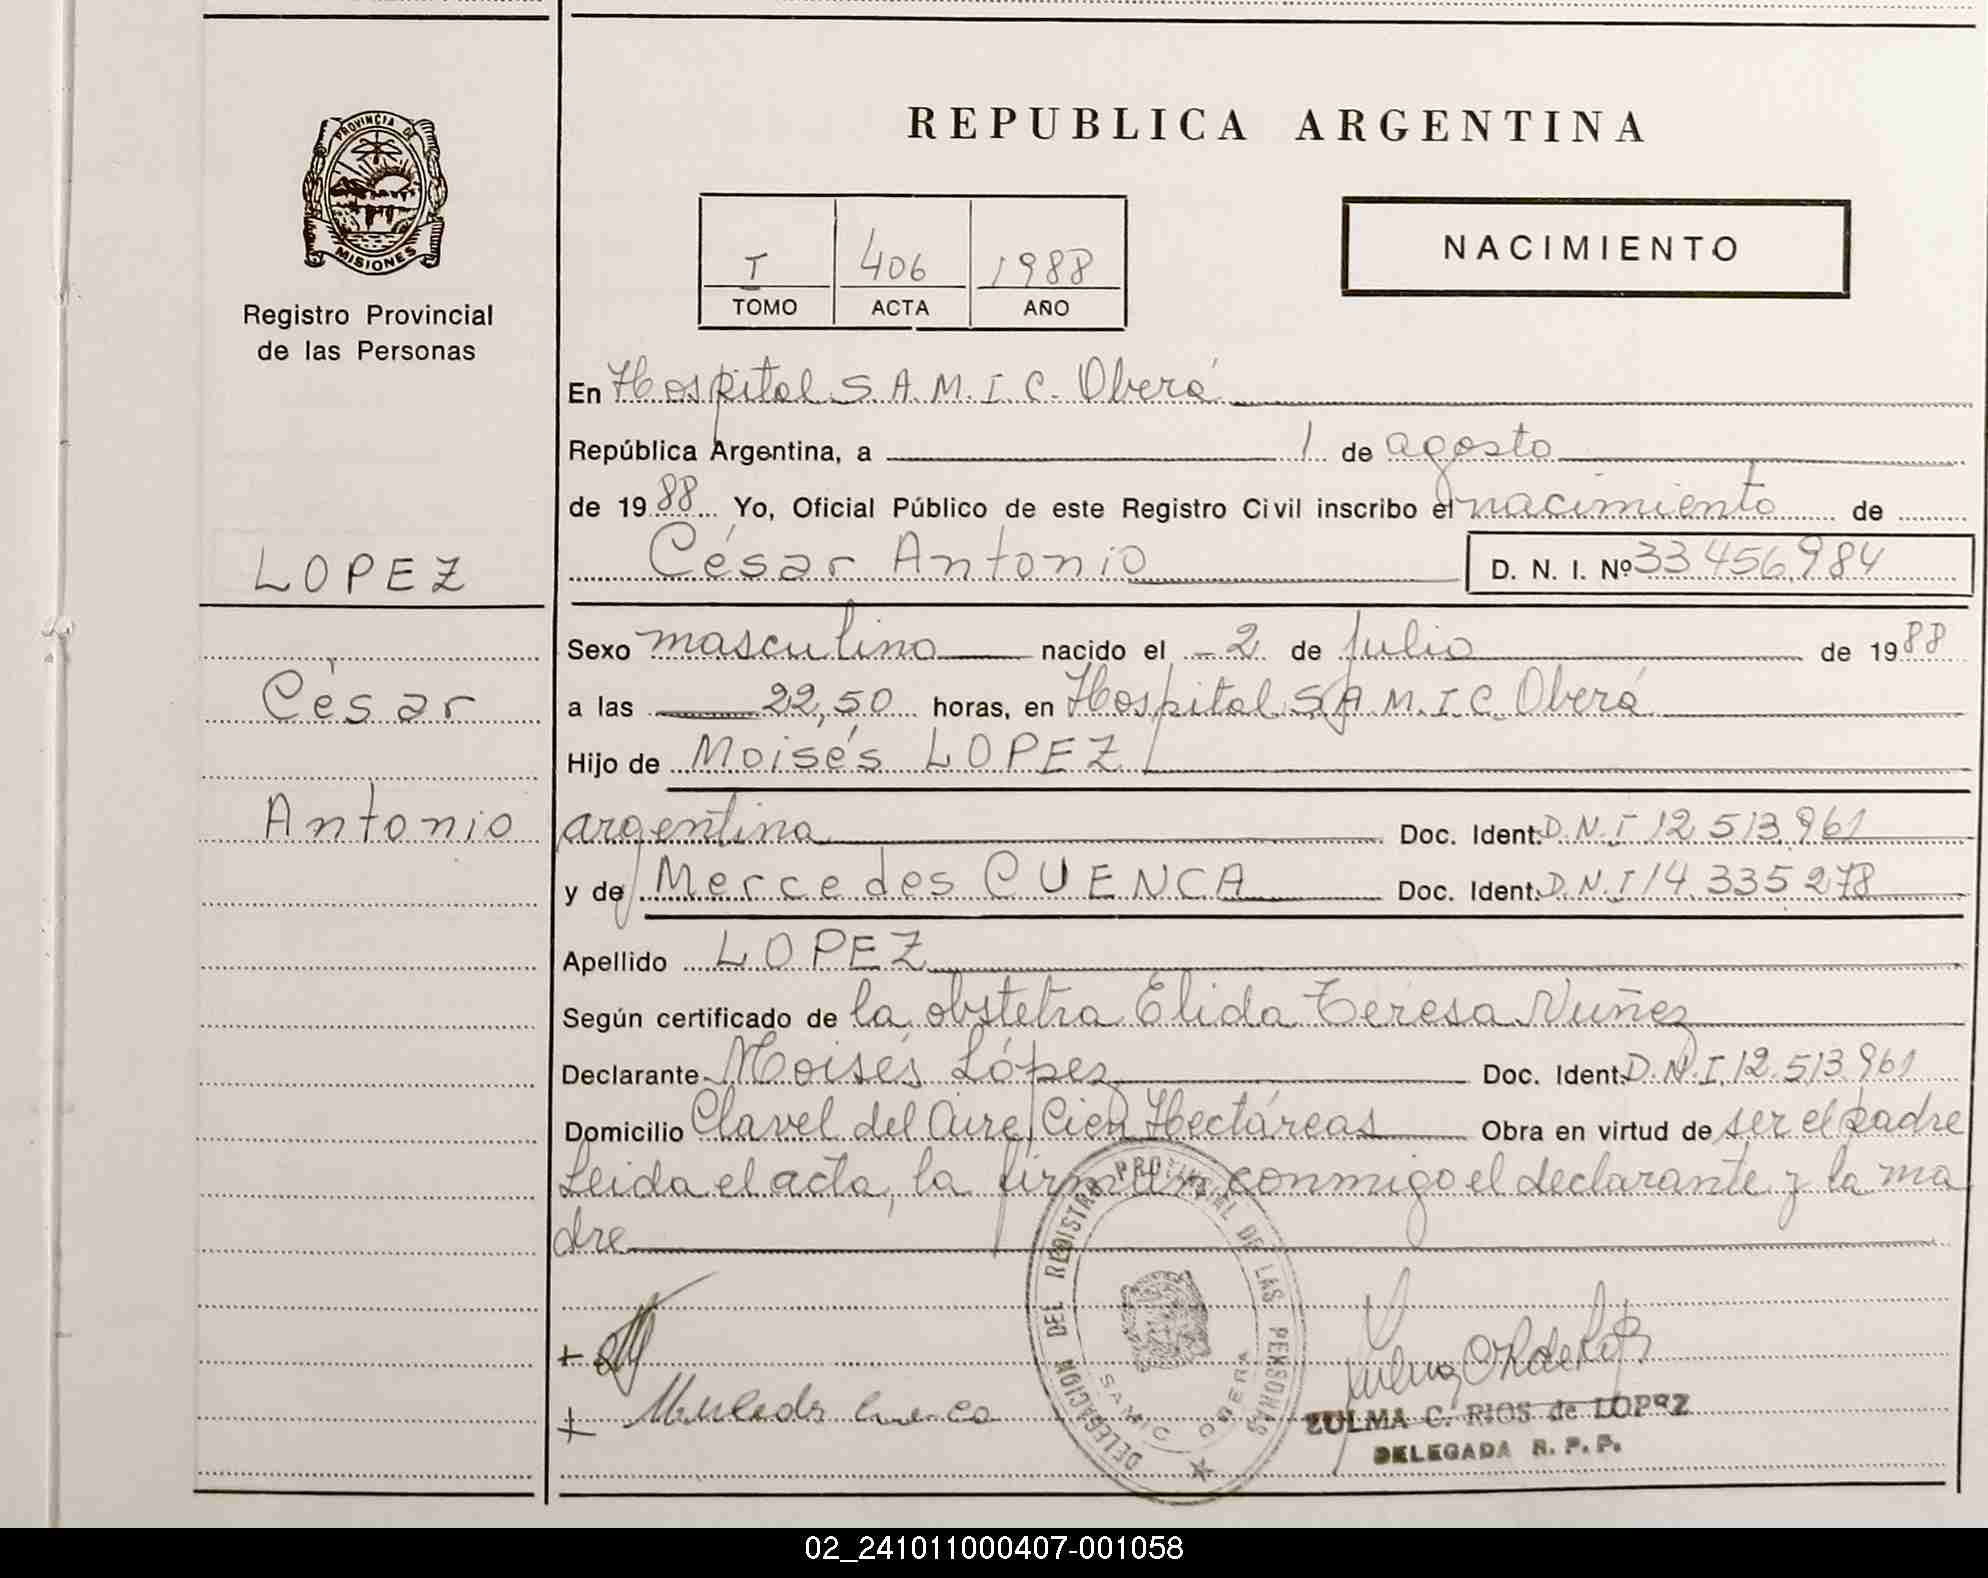 REPUBLICA ARGENTINA
PROVINCIA DE
MISIONES
Registro Provincial
de las Personas
T 406 1988
TOMO ACTA AÑO
NACIMIENTO
En Hospital S.A.M.I.C. Oberá
República Argentina, a 1 de agosto
de 1988 Yo, Oficial Público de este Registro Civil inscribo el nacimiento de
LOPEZ
César Antonio D. N. I. Nº 33 456,984
Sexo masculino nacido el -2 de julio de 1988
César
a las 22,50 horas, en Hospital S.A.M.I.C. Oberá
Hijo de Moisés LOPEZ
Antonio
argentina Doc. Ident. D.N.I 12.513.961
y de Mercedes CUENCA Doc. Ident. D.N.I 14.335.278
Apellido LOPEZ
Según certificado de la obstetra Elida Teresa Nuñez
Declarante Moisés López Doc. Ident. D.N.I. 12.513.961
Domicilio Clavel del Aire, Cien Hectáreas Obra en virtud de ser el padre
Leida el acta, la firman conmigo el declarante y la ma
dre
DELEGACION DEL REGISTRO PROVINCIAL DE LAS PERSONAS
SAMIC OBERA
ZULMA C. RIOS de LOPEZ
DELEGADA R. P. P.
02_241011000407-001058